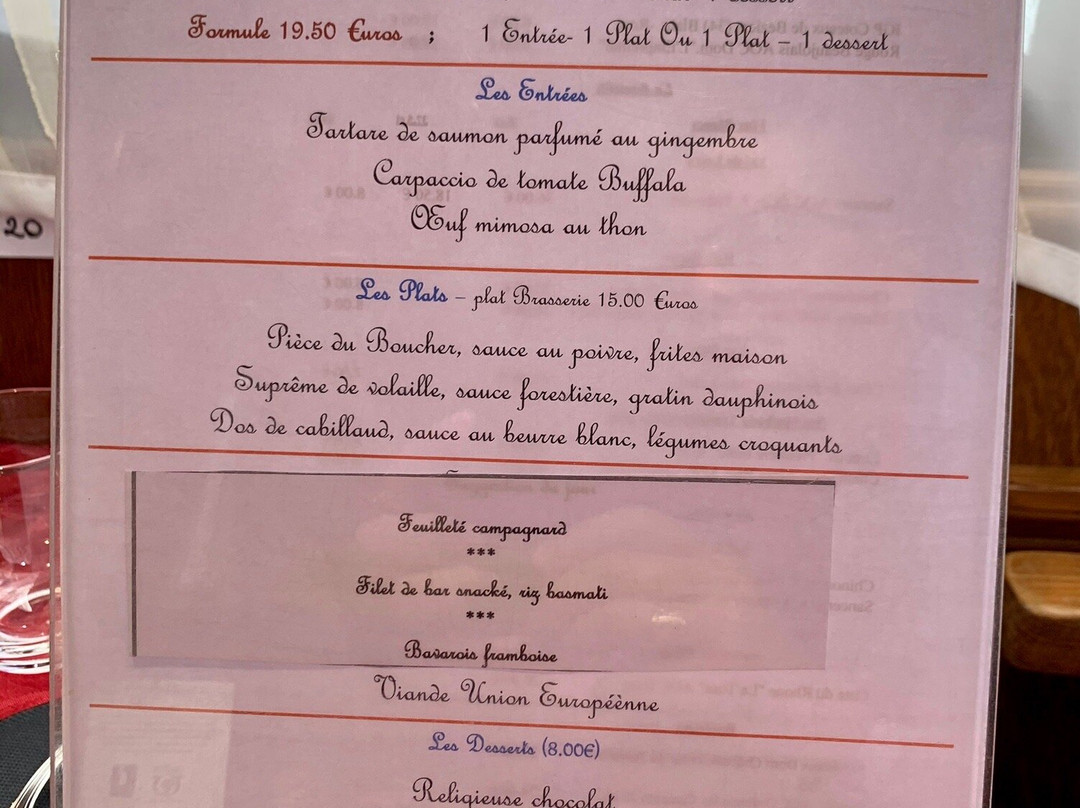 Formule 19.50 Euros ; 1 Entrée- 1 Plat Ou 1 Plat – 1 dessert
Les Entrées
Tartare de saumon parfumé au gingembre
Carpaccio de tomate Buffala
Œuf mimosa au thon
20
Les Plats – plat Brasserie 15.00 Euros
Pièce du Boucher, sauce au poivre, frites maison
Suprême de volaille, sauce forestière, gratin dauphinois
Dos de cabillaud, sauce au beurre blanc, légumes croquants
Feuilleté campagnard
***
Filet de bar snacké, riz basmati
***
Bavarois framboise
Viande Union Européènne
Les Desserts (8.00€)
Religieuse chocolat